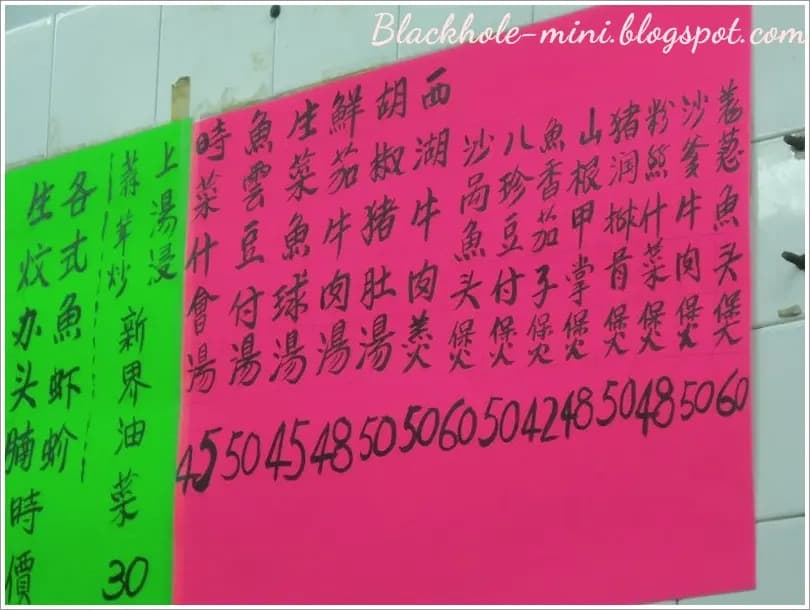 Blackhole-mini.blogspot.com
姜葱魚头煲 60
沙爹牛肉煲 50
粉絲什菜煲 48
猪润排骨煲 50
山根甲掌煲 48
魚香茄子煲 42
八珍豆付煲 50
沙咼魚头煲 60
西湖牛肉羹 50
胡椒猪肚湯 50
鮮茄牛肉湯 48
生菜魚球湯 45
魚雲豆付湯 50
時菜什會湯 45
上湯浸
蒜茸炒
新界油菜 30
各式魚虾蚧
生炆办头腩
時價